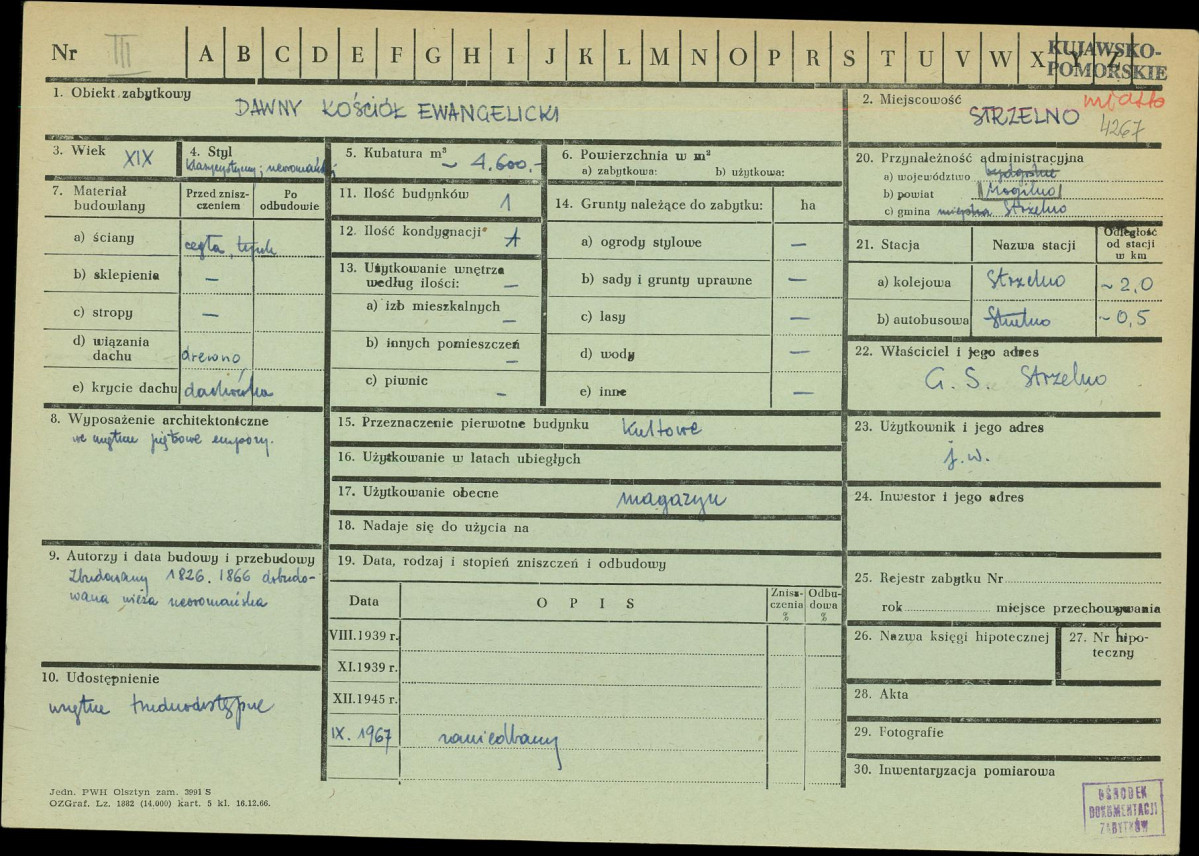 Nr III A B C D E F G H I J K L M N O P R S T U V W X Y Z
KUJAWSKO-
POMORSKIE
1. Obiekt zabytkowy DAWNY KOŚCIÓŁ EWANGELICKI
2. Miejscowość miasto
STRZELNO 4267
3. Wiek XIX
4. Styl
klasycystyczny; neoromański
5. Kubatura m³ ~ 4.600.-
6. Powierzchnia w m²
a) zabytkowa: b) użytkowa:
7. Materiał
budowlany
Przed znisz-
czeniem
Po
odbudowie
a) ściany cegła, tynk
b) sklepienia —
c) stropy —
d) wiązania
dachu drewno
e) krycie dachu dachówka
8. Wyposażenie architektoniczne
we wnętrzu piętrowe empory.
9. Autorzy i data budowy i przebudowy
Zbudowany 1826. 1866 dobudo-
wana wieża neoromańska
10. Udostępnienie
wnętrze trudnodostępne
11. Ilość budynków 1
12. Ilość kondygnacji 1
13. Użytkowanie wnętrza
według ilości: —
a) izb mieszkalnych —
b) innych pomieszczeń —
c) piwnic —
14. Grunty należące do zabytku: ha
a) ogrody stylowe —
b) sady i grunty uprawne —
c) lasy —
d) wody —
e) inne —
15. Przeznaczenie pierwotne budynku kultowe
16. Użytkowanie w latach ubiegłych
17. Użytkowanie obecne magazyn
18. Nadaje się do użycia na
19. Data, rodzaj i stopień zniszczeń i odbudowy
Data O P I S
Znisz-
czenia
%
Odbu-
dowa
%
VIII.1939 r.
XI.1939 r.
XII.1945 r.
IX. 1967 zaniedbany
20. Przynależność administracyjna
a) województwo bydgoskie
b) powiat Mogilno
c) gmina miejska Strzelno
21. Stacja Nazwa stacji
Odległość
od stacji
w km
a) kolejowa Strzelno ~ 2,0
b) autobusowa Strzelno ~ 0,5
22. Właściciel i jego adres
G. S. Strzelno
23. Użytkownik i jego adres
j.w.
24. Inwestor i jego adres
25. Rejestr zabytku Nr
rok miejsce przechowywania
26. Nazwa księgi hipotecznej
27. Nr hipo-
teczny
28. Akta
29. Fotografie
30. Inwentaryzacja pomiarowa
Jedn. PWH Olsztyn zam. 3991 S
OZGraf. Lz. 1882 (14.000) kart. 5 kl. 16.12.66.
OŚRODEK
DOKUMENTACJI
ZABYTKÓW